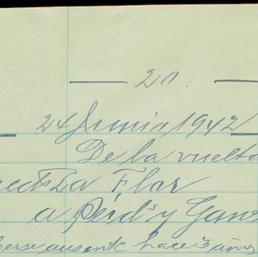 20.
24 Junio 1942
De la vuelta
La Flor
a Reid y Gans
ausente hace 3 años